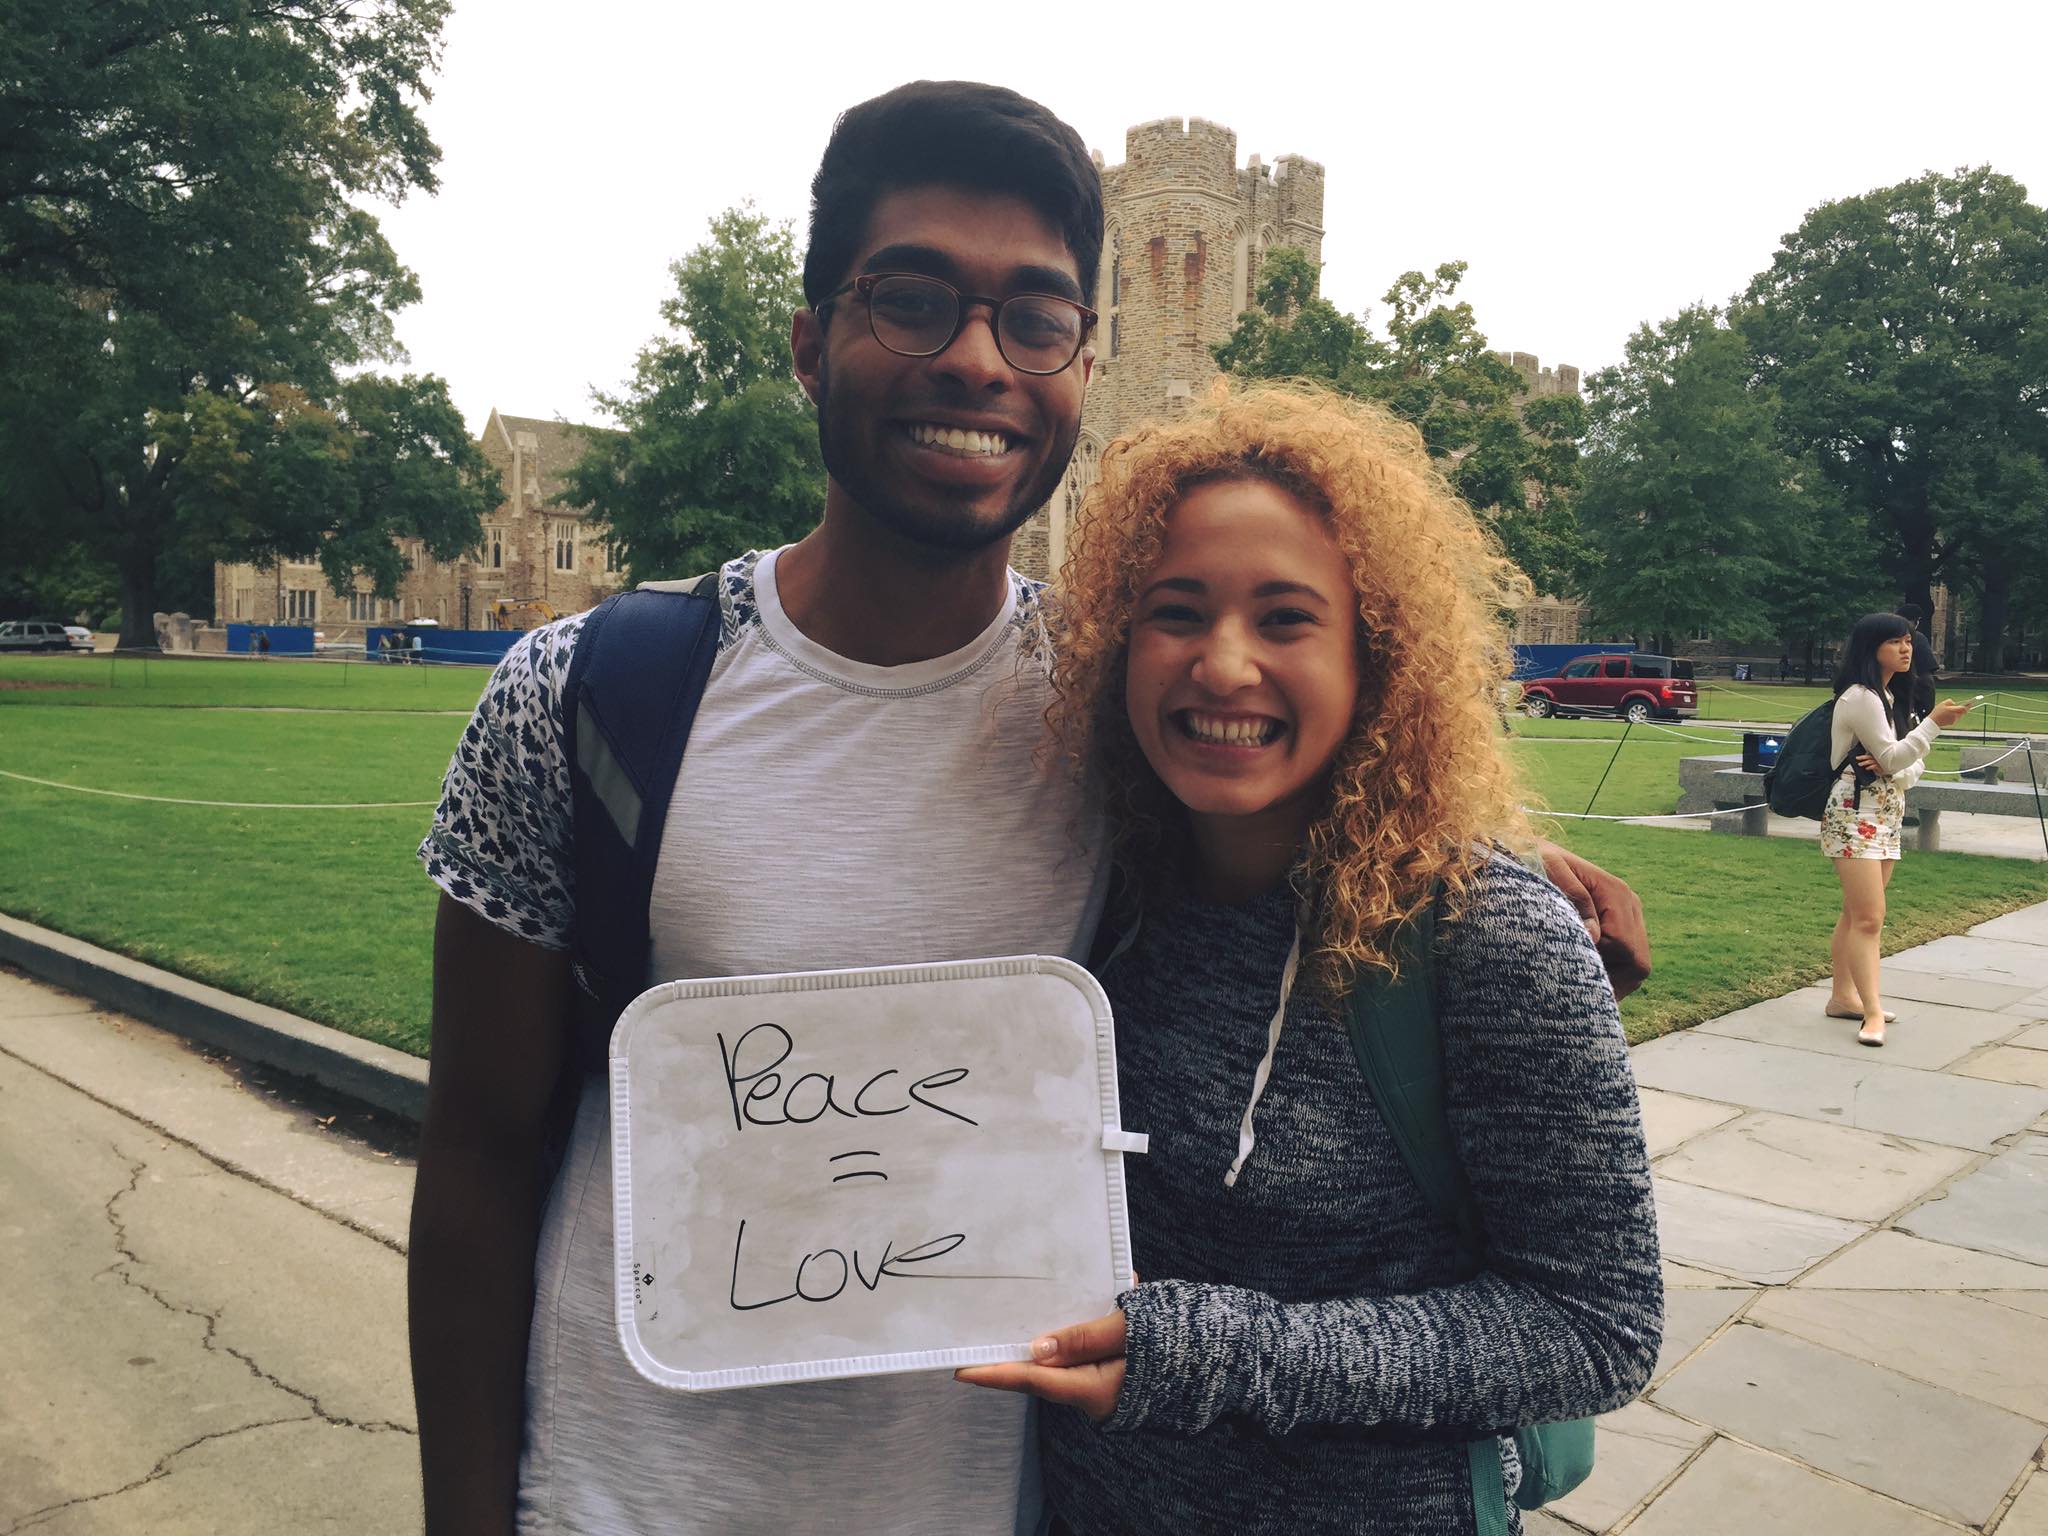 Peace
=
Love
Sparco™